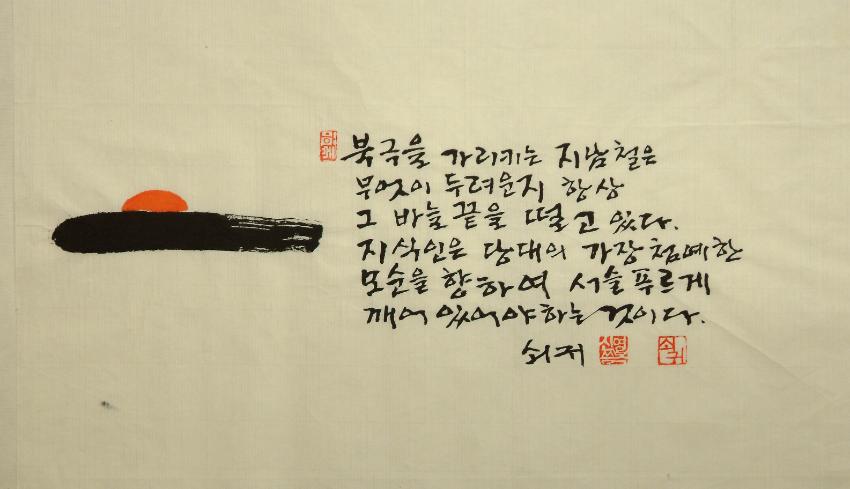 북극을 가리키는 지남철은
무엇이 두려운지 항상
그 바늘끝을 떨고 있다.
지식인은 당대의 가장첨예한
모순을 향하여 서슬푸르게
깨어 있어야하는것이다.
쇠귀